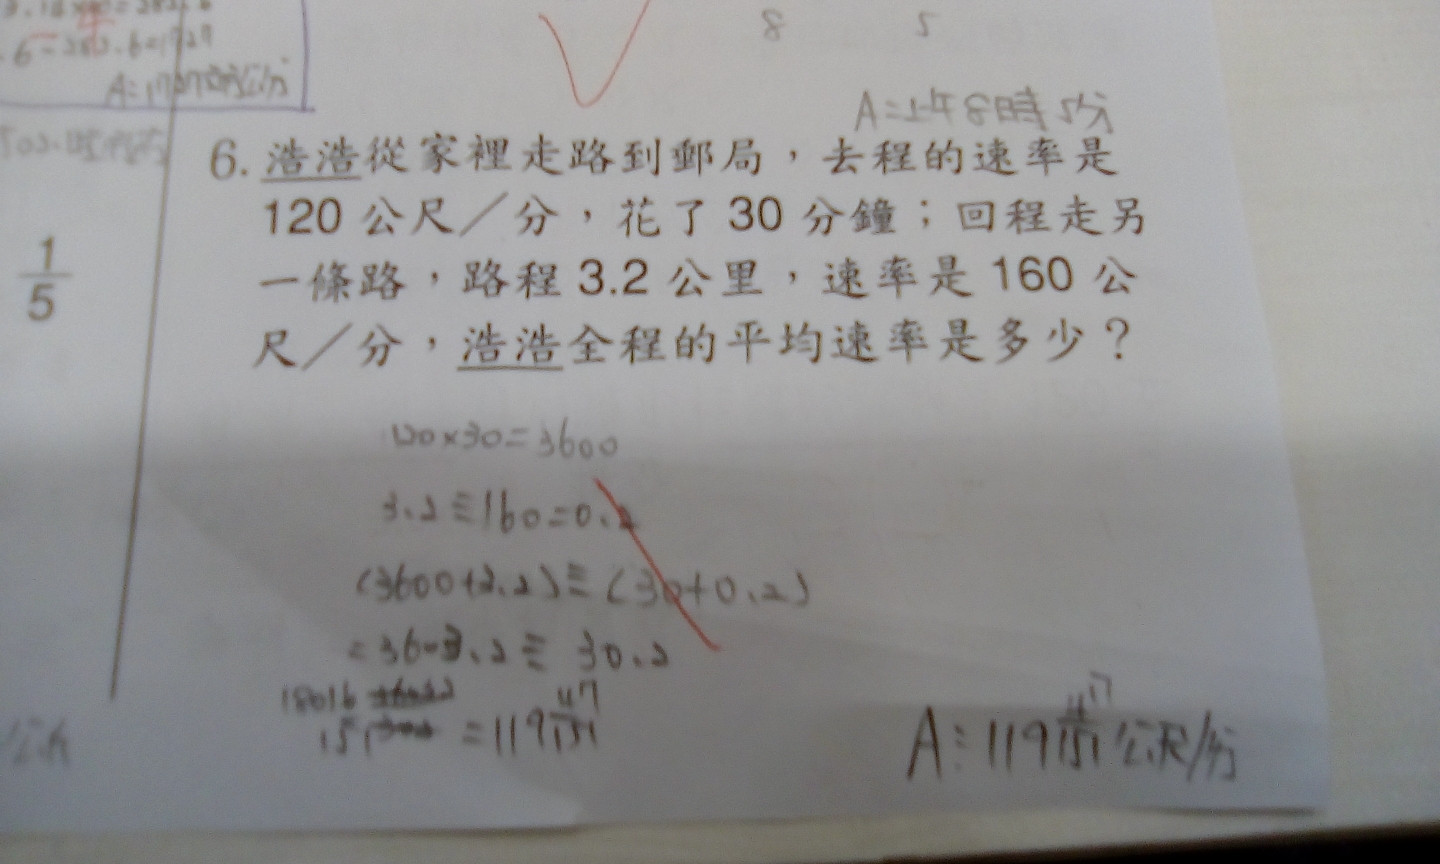 8 5
A=上午8時5分
6. 浩浩從家裡走路到郵局，去程的速率是
120 公尺／分，花了 30 分鐘；回程走另
一條路，路程 3.2 公里，速率是 160 公
尺／分，浩浩全程的平均速率是多少？
1
5
120×30=3600
3.2÷160=0.2
(3600+3.2)÷(30+0.2)
=3603.2÷30.2
18016
151
=119 47
151
A:119 47
151 公尺/分